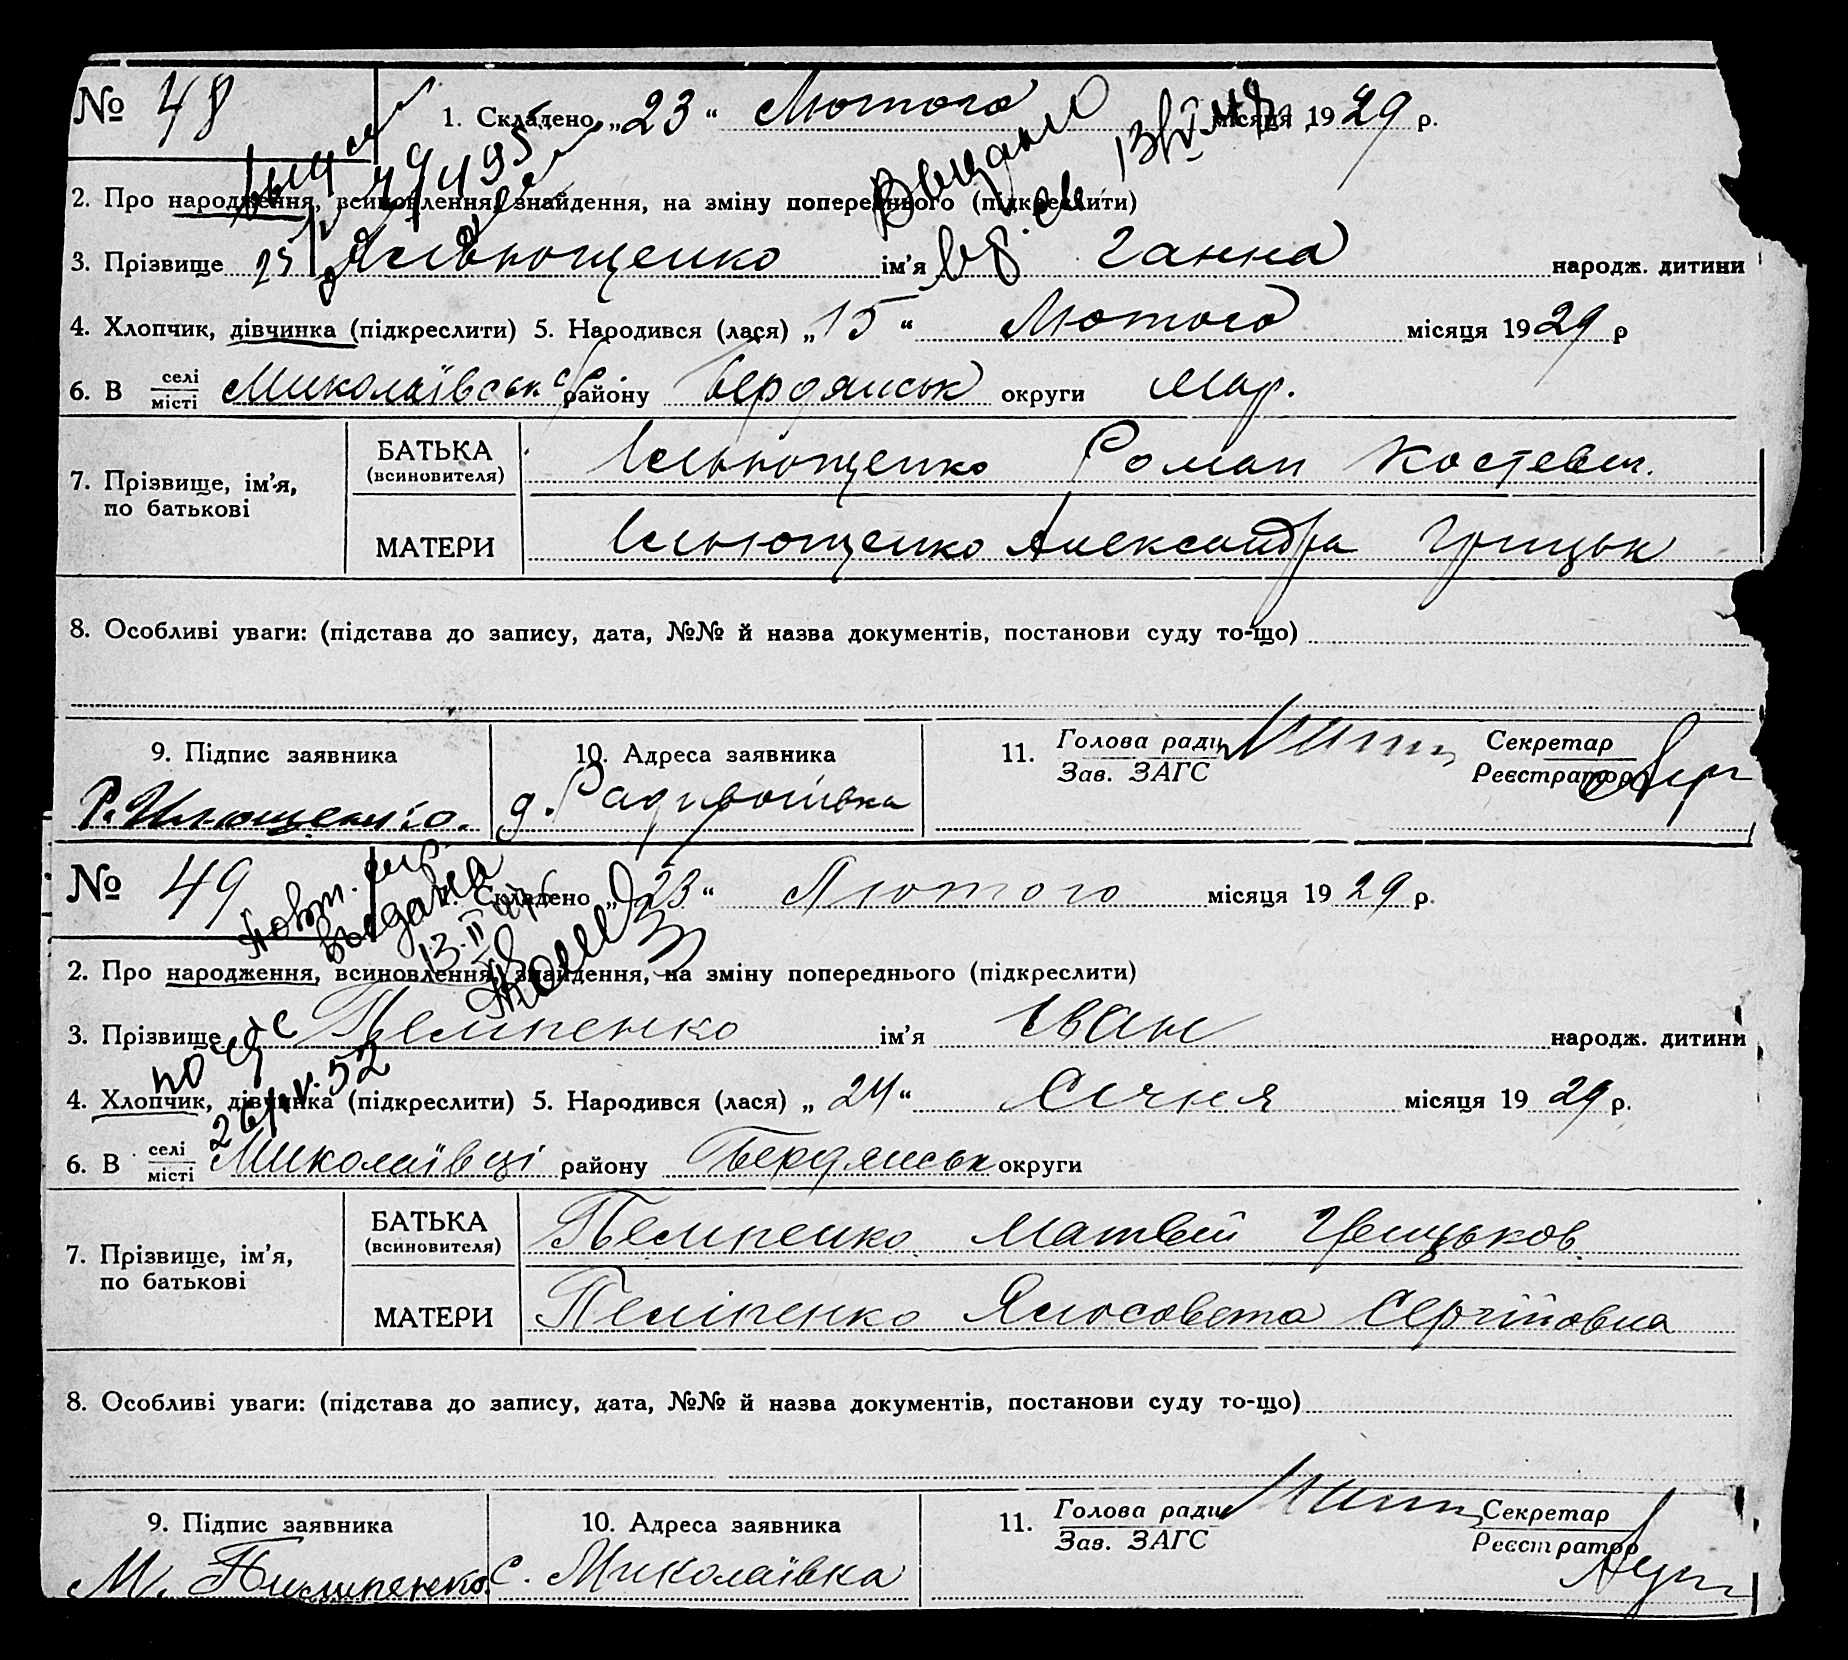 № 48
1. Складено „23“ Лютого місяця 1929 р.
Выдано
2. Про народження, всиновлення, знайдення, на зміну попереднього (підкреслити)
3. Прізвище Ілльющенко ім'я Ганна народж. дитини
4. Хлопчик, дівчинка (підкреслити) 5. Народився (лася) „15“ Лютого місяця 1929 р
6. В селі місті Миколаївськ. с/р району Бердянськ округи Мар.
7. Прізвище, ім'я, по батькові
БАТЬКА (всиновителя) Ілльющенко Роман Костевич.
МАТЕРИ Ілльющенко Александра Грицьк
8. Особливі уваги: (підстава до запису, дата, №№ й назва документів, постанови суду то-що)
9. Підпис заявника 10. Адреса заявника 11. Голова ради Зав. ЗАГС Секретар Реєстратор
Р. Илющенко. д.
№ 49
1. Складено „23“ Лютого місяця 1929 р.
повт. выдана 13. II
2. Про народження, всиновлення, знайдення, на зміну попереднього (підкреслити)
3. Прізвище Пелипенко ім'я Іван народж. дитини
4. Хлопчик, дівчинка (підкреслити) 5. Народився (лася) „24“ Січня місяця 1929 р.
26/IV. 52
6. В селі місті Миколаївці району Бердянськ округи
7. Прізвище, ім'я, по батькові
БАТЬКА (всиновителя) Пелипенко Матвій Грицьков.
МАТЕРИ Пеліпенко Єлосовета Сергіїовна
8. Особливі уваги: (підстава до запису, дата, №№ й назва документів, постанови суду то-що)
9. Підпис заявника 10. Адреса заявника 11. Голова ради Зав. ЗАГС Секретар Реєстратор
М. Пилипенко. с. Миколаївка